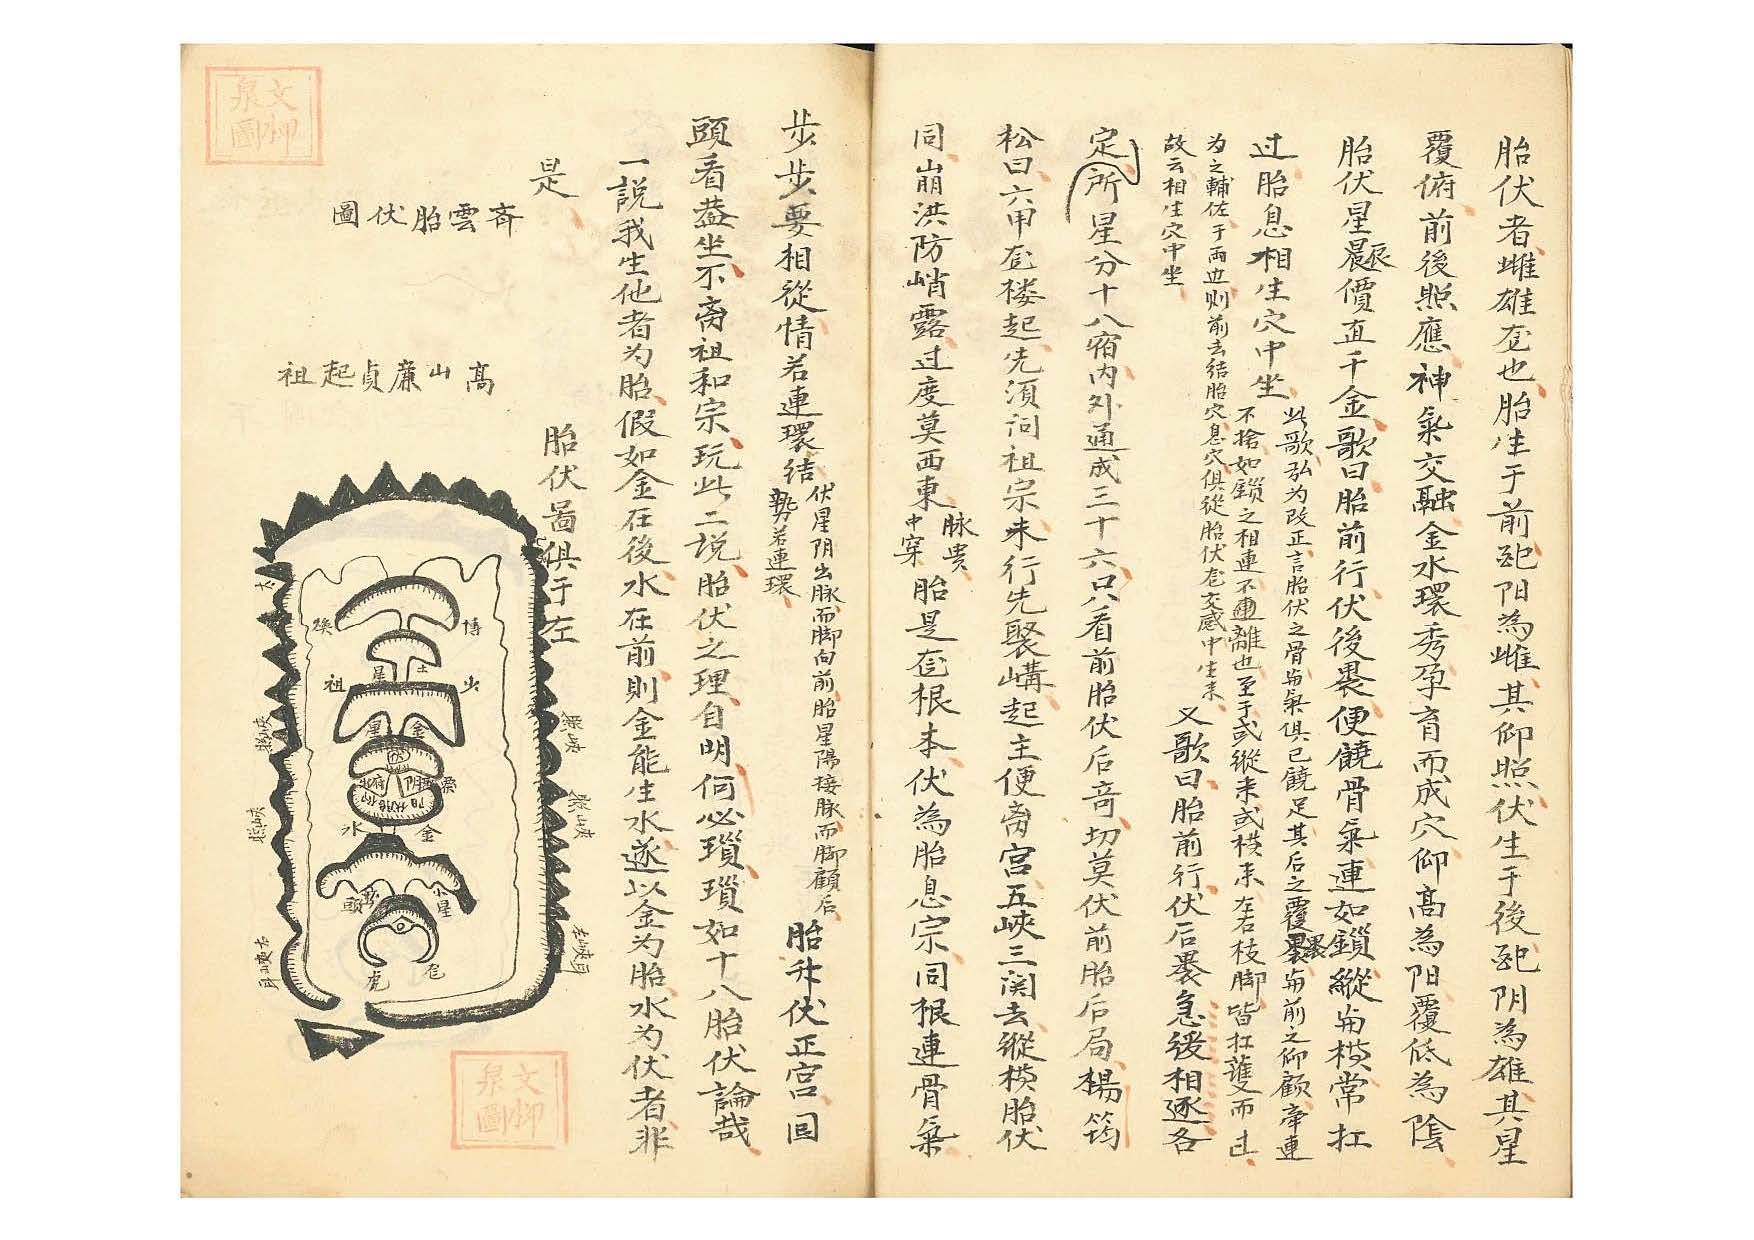 胎伏者雌雄龙也胎生于前配阳為雌其仰照伏生于後配阴為雄其星
覆俯前後照應神氣交融金水環秀孕育而成穴仰高為阳覆低為陰
胎伏星晨辰價直千金歌曰胎前行伏後裹便饒骨氣連如鎖縱与横常扛
过胎息相生穴中坐
此歌弘为改正言胎伏之骨与氣俱已饒足其后之覆裹与前之仰顧牽連
不捨如鎖之相連不離也至于或縱来或横来左右枝脚皆扛護而过
为之輔佐于两边则前去结胎穴息穴俱從胎伏龙交感中生来
故云相生穴中坐
又歌曰胎前行伏后裹急缓相逐各
定所星分十八宿内外通成三十六只看前胎伏后奇切莫伏前胎后局楊筠
松曰六甲龙楼起先須问祖宗来行先聚講起主便离宫五峽三関去縱横胎伏
同崩洪防峭露过度莫西東
脉贵
中穿
胎是龙根本伏為胎息宗同根連骨氣
步步要相從情若連環结
伏星阴出脉而脚向前胎星陽接脉而脚顧后
勢若連環
胎升伏正宫回
頭看盖坐不离祖和宗玩此二说胎伏之理自明何必瑣瑣如十八胎伏論哉
一説我生他者为胎假如金在後水在前则金能生水遂以金为胎水为伏者非
是
斉雲胎伏圖
胎伏畐俱于左
高山廉貞起祖
博
換
土
星
少
祖
金
星
伏
金
水
星
頭
龙
虎
文柳
泉圖
文柳
泉圖